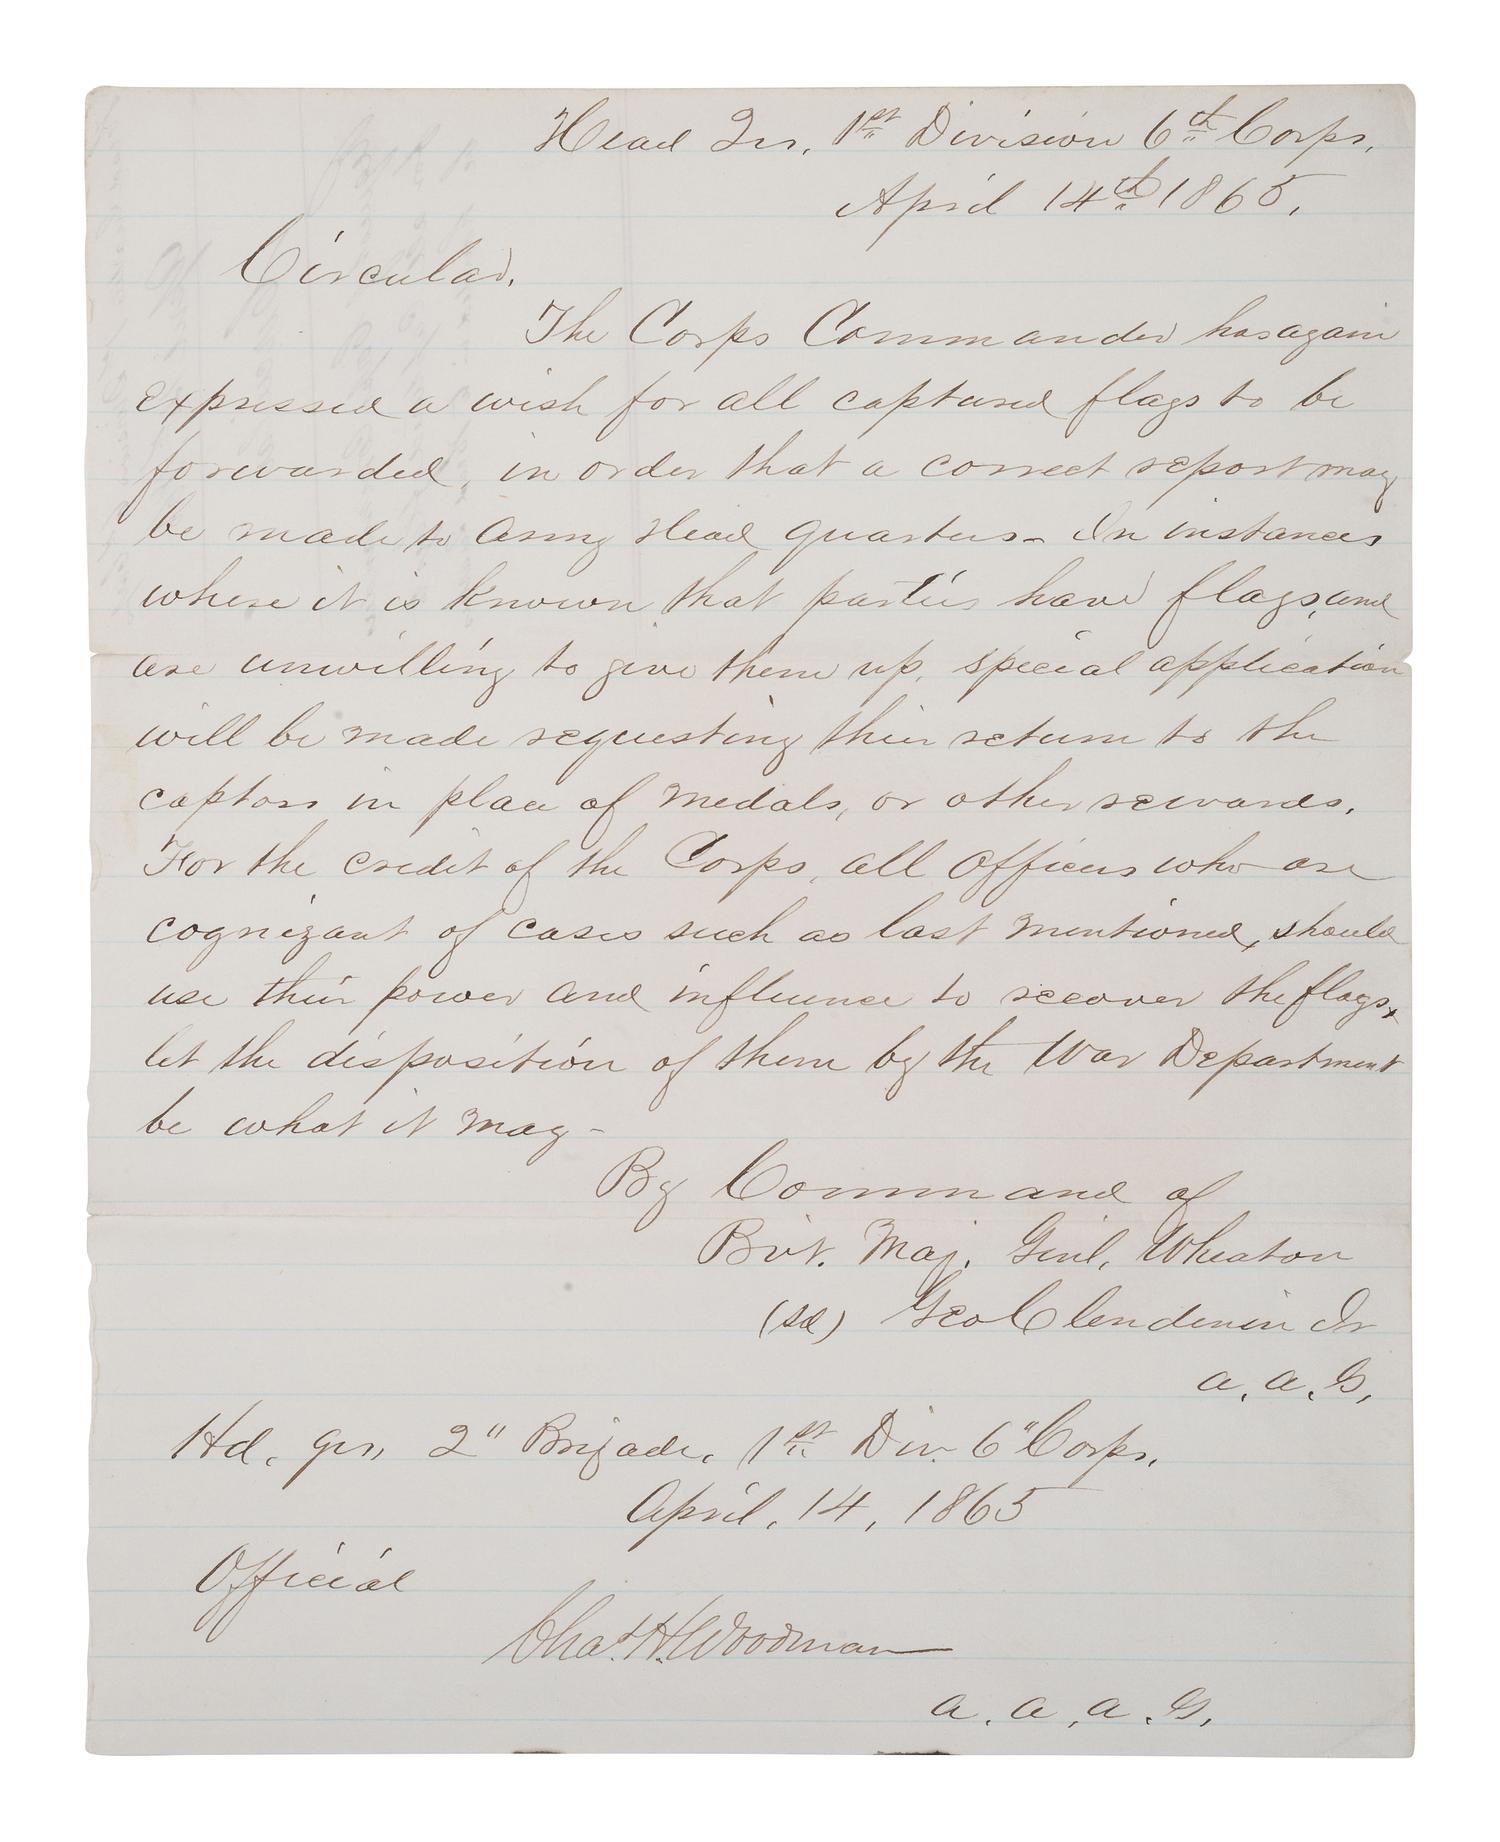 Head Qrs. 1st Division 6th Corps.
April 14th 1865.
Circular.
The Corps Commander has again
expressed a wish for all captured flags to be
forwarded, in order that a correct report may
be made to Army Head quarters - In instances
where it is known that parties have flags, and
are unwilling to give them up, special application
will be made requesting their return to the
captors in place of medals, or other rewards.
For the credit of the Corps, all Officers who are
cognizant of cases such as last mentioned, should
use their power and influence to recover the flags,
let the disposition of them by the War Department
be what it may -
By Command of
Bvt. Maj. Genl. Wheaton
(sd) Geo Clendenin Jr
A. A. G.
Hd. qrs. 2" Brigade. 1st Div. 6" Corps.
April. 14, 1865
Official
Chas. H. Woodman
A. A. A. G.